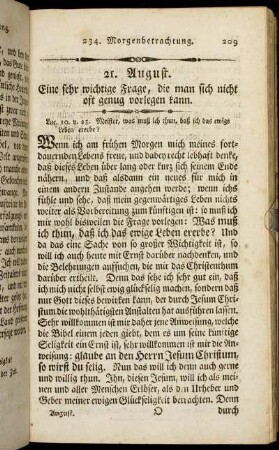 234. Morgenbetrachtung. 209
21. August.
Eine sehr wichtige Frage, die man sich nicht
oft genug vorlegen kann.
Luc. 10. v. 25. Meister, was muß ich thun, daß ich das ewige
Leben ererbe?
Wenn ich am frühen Morgen mich meines fort-
daurenden Lebens freue, und dabey recht lebhaft denke,
daß dieses Leben über lang oder kurz sich seinem Ende
nähern, und daß alsdann ein neues für mich in
einem andern Zustande angehen werde; wenn ichs
fühle und sehe, daß mein gegenwärtiges Leben nichts
weiter als Vorbereitung zum künftigen ist: so muß ich
mir wohl bisweilen die Frage vorlegen: Was muß
ich thun, daß ich das ewige Leben ererbe? Und
da das eine Sache von so großer Wichtigkeit ist, so
will ich auch heute mit Ernst darüber nachdenken, und
die Belehrungen auffuchen, die mir das Christenthum
darüber ertheilt. Denn das sehe ich sehr gut ein, daß
ich mich nicht selbst ewig glückselig machen, sondern daß
nur Gott dieses bewirken kann, der durch Jesum Chri-
stum die wohlthätigsten Anstalten hat ausführen lassen.
Sehr willkommen ist mir daher jene Anweisung, welche
die Bibel einem jeden giebt, dem es um seine künftige
Seligkeit ein Ernst ist, sehr willkommen ist mir die An-
weisung: glaube an den Herrn Jesum Christum,
so wirst du selig. Nun das will ich denn auch gerne
und willig thun. Ihn, diesen Jesum, will ich als mei-
nen und aller Menschen Erlöser, als den Urheber und
Geber meiner ewigen Glückseligkeit betrachten. Denn
August. O durch